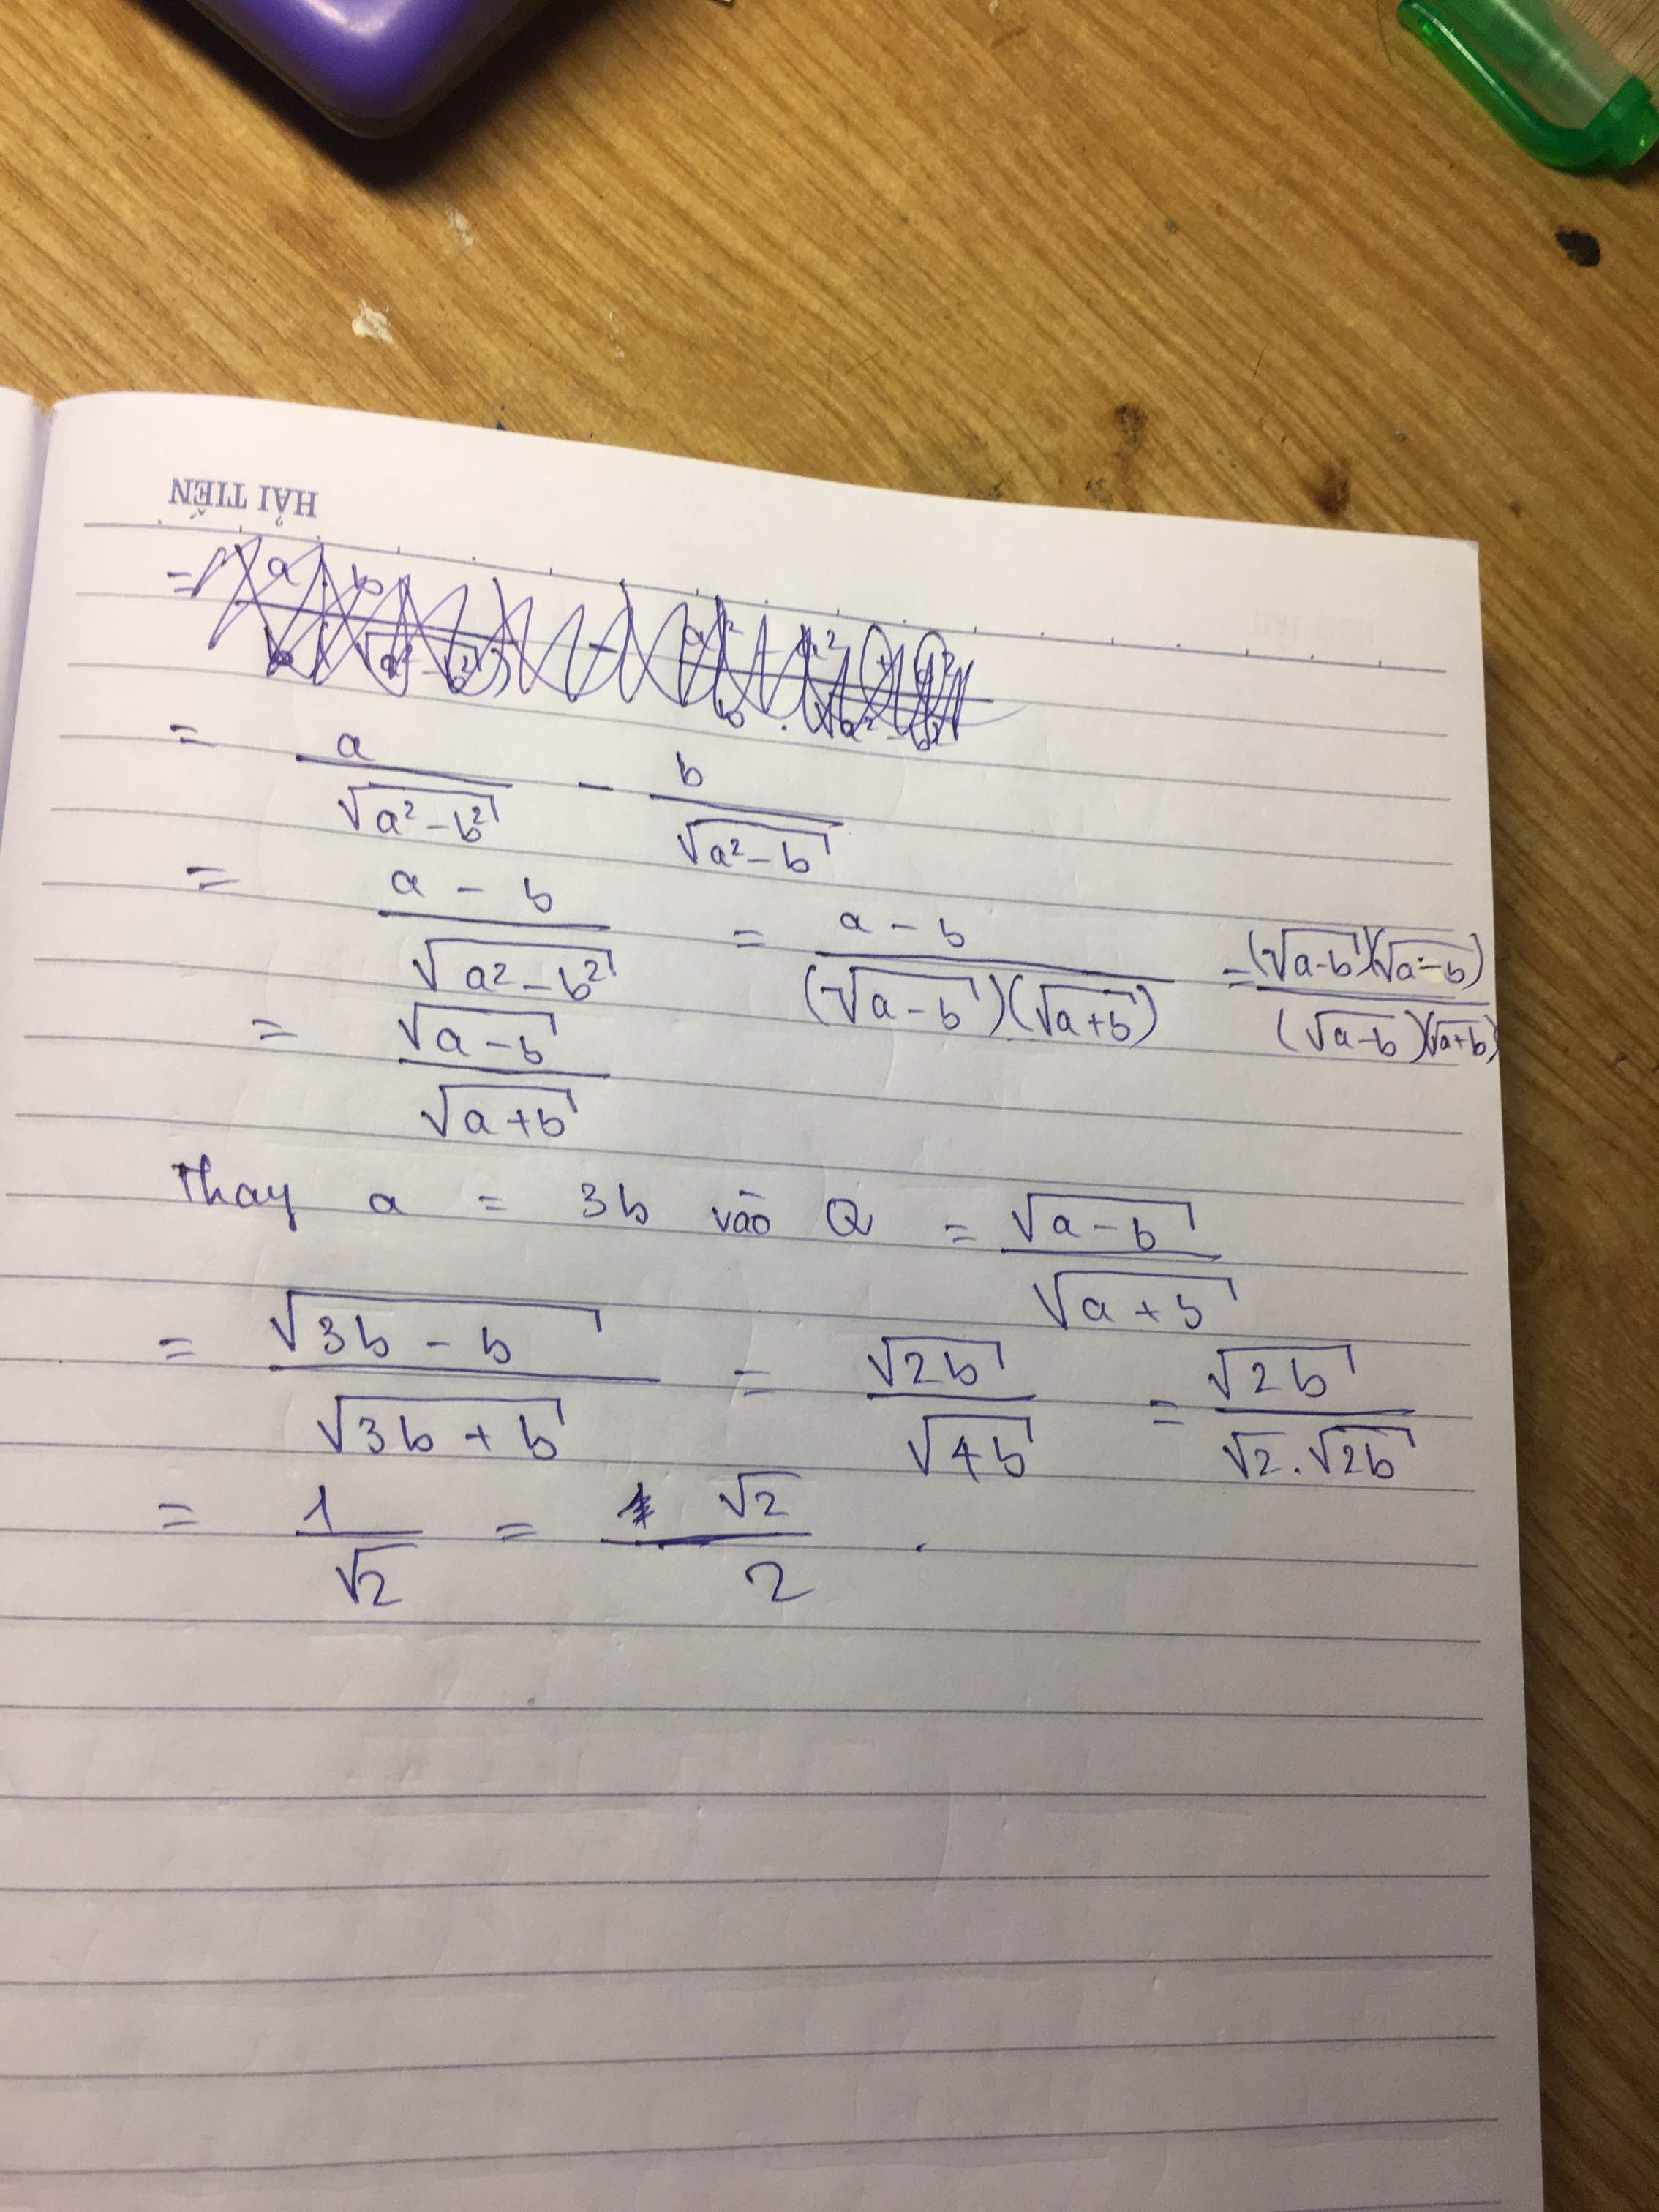 HẢI TIẾN
= a/√(a²-b²) - b/√(a²-b)
= (a-b)/√(a²-b²) = (a-b)/((√(a-b))(√(a+b))) = ((√(a-b))(√(a-b)))/((√(a-b))(√(a+b)))
= √(a-b)/√(a+b)
Thay a = 3b vào Q = √(a-b)/√(a+b)
= √(3b-b)/√(3b+b) = √(2b)/√(4b) = √(2b)/(√2.√(2b))
= 1/√2 = √2/2 .